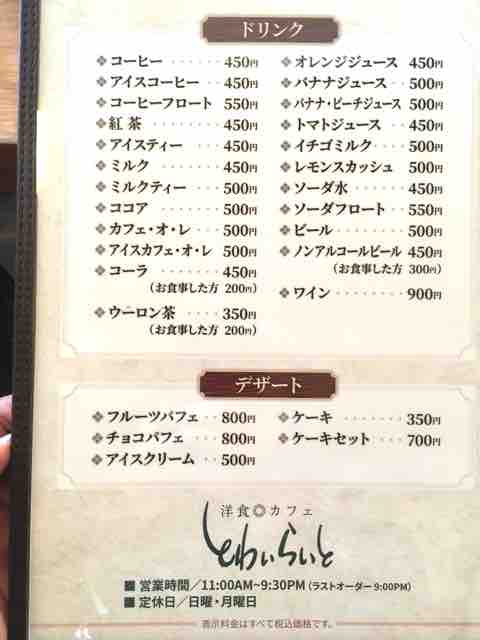 ドリンク
❖コーヒー ······ 450円
❖アイスコーヒー ·· 450円
❖コーヒーフロート 550円
❖紅 茶 ········ 450円
❖アイスティー ···· 450円
❖ミルク ······· 450円
❖ミルクティー ···· 500円
❖ココア ······· 500円
❖カフェ・オ・レ ··· 500円
❖アイスカフェ・オ・レ 500円
❖コーラ ······· 450円
(お食事した方 200円)
❖ウーロン茶 ····· 350円
(お食事した方 200円)
❖オレンジジュース 450円
❖バナナジュース ·· 500円
❖バナナ・ピーチジュース 500円
❖トマトジュース ·· 450円
❖イチゴミルク ···· 500円
❖レモンスカッシュ 500円
❖ソーダ水 ······ 450円
❖ソーダフロート ·· 550円
❖ビール ······· 500円
❖ノンアルコールビール 450円
(お食事した方 300円)
❖ワイン ······· 900円
デザート
❖フルーツパフェ ·· 800円
❖チョコパフェ ··· 800円
❖アイスクリーム ·· 500円
❖ケーキ ······· 350円
❖ケーキセット ···· 700円
洋食◎カフェ
とわいらいと
■ 営業時間／11:00AM~9:30PM (ラストオーダー 9:00PM)
■ 定休日／日曜・月曜日
表示料金はすべて税込価格です。